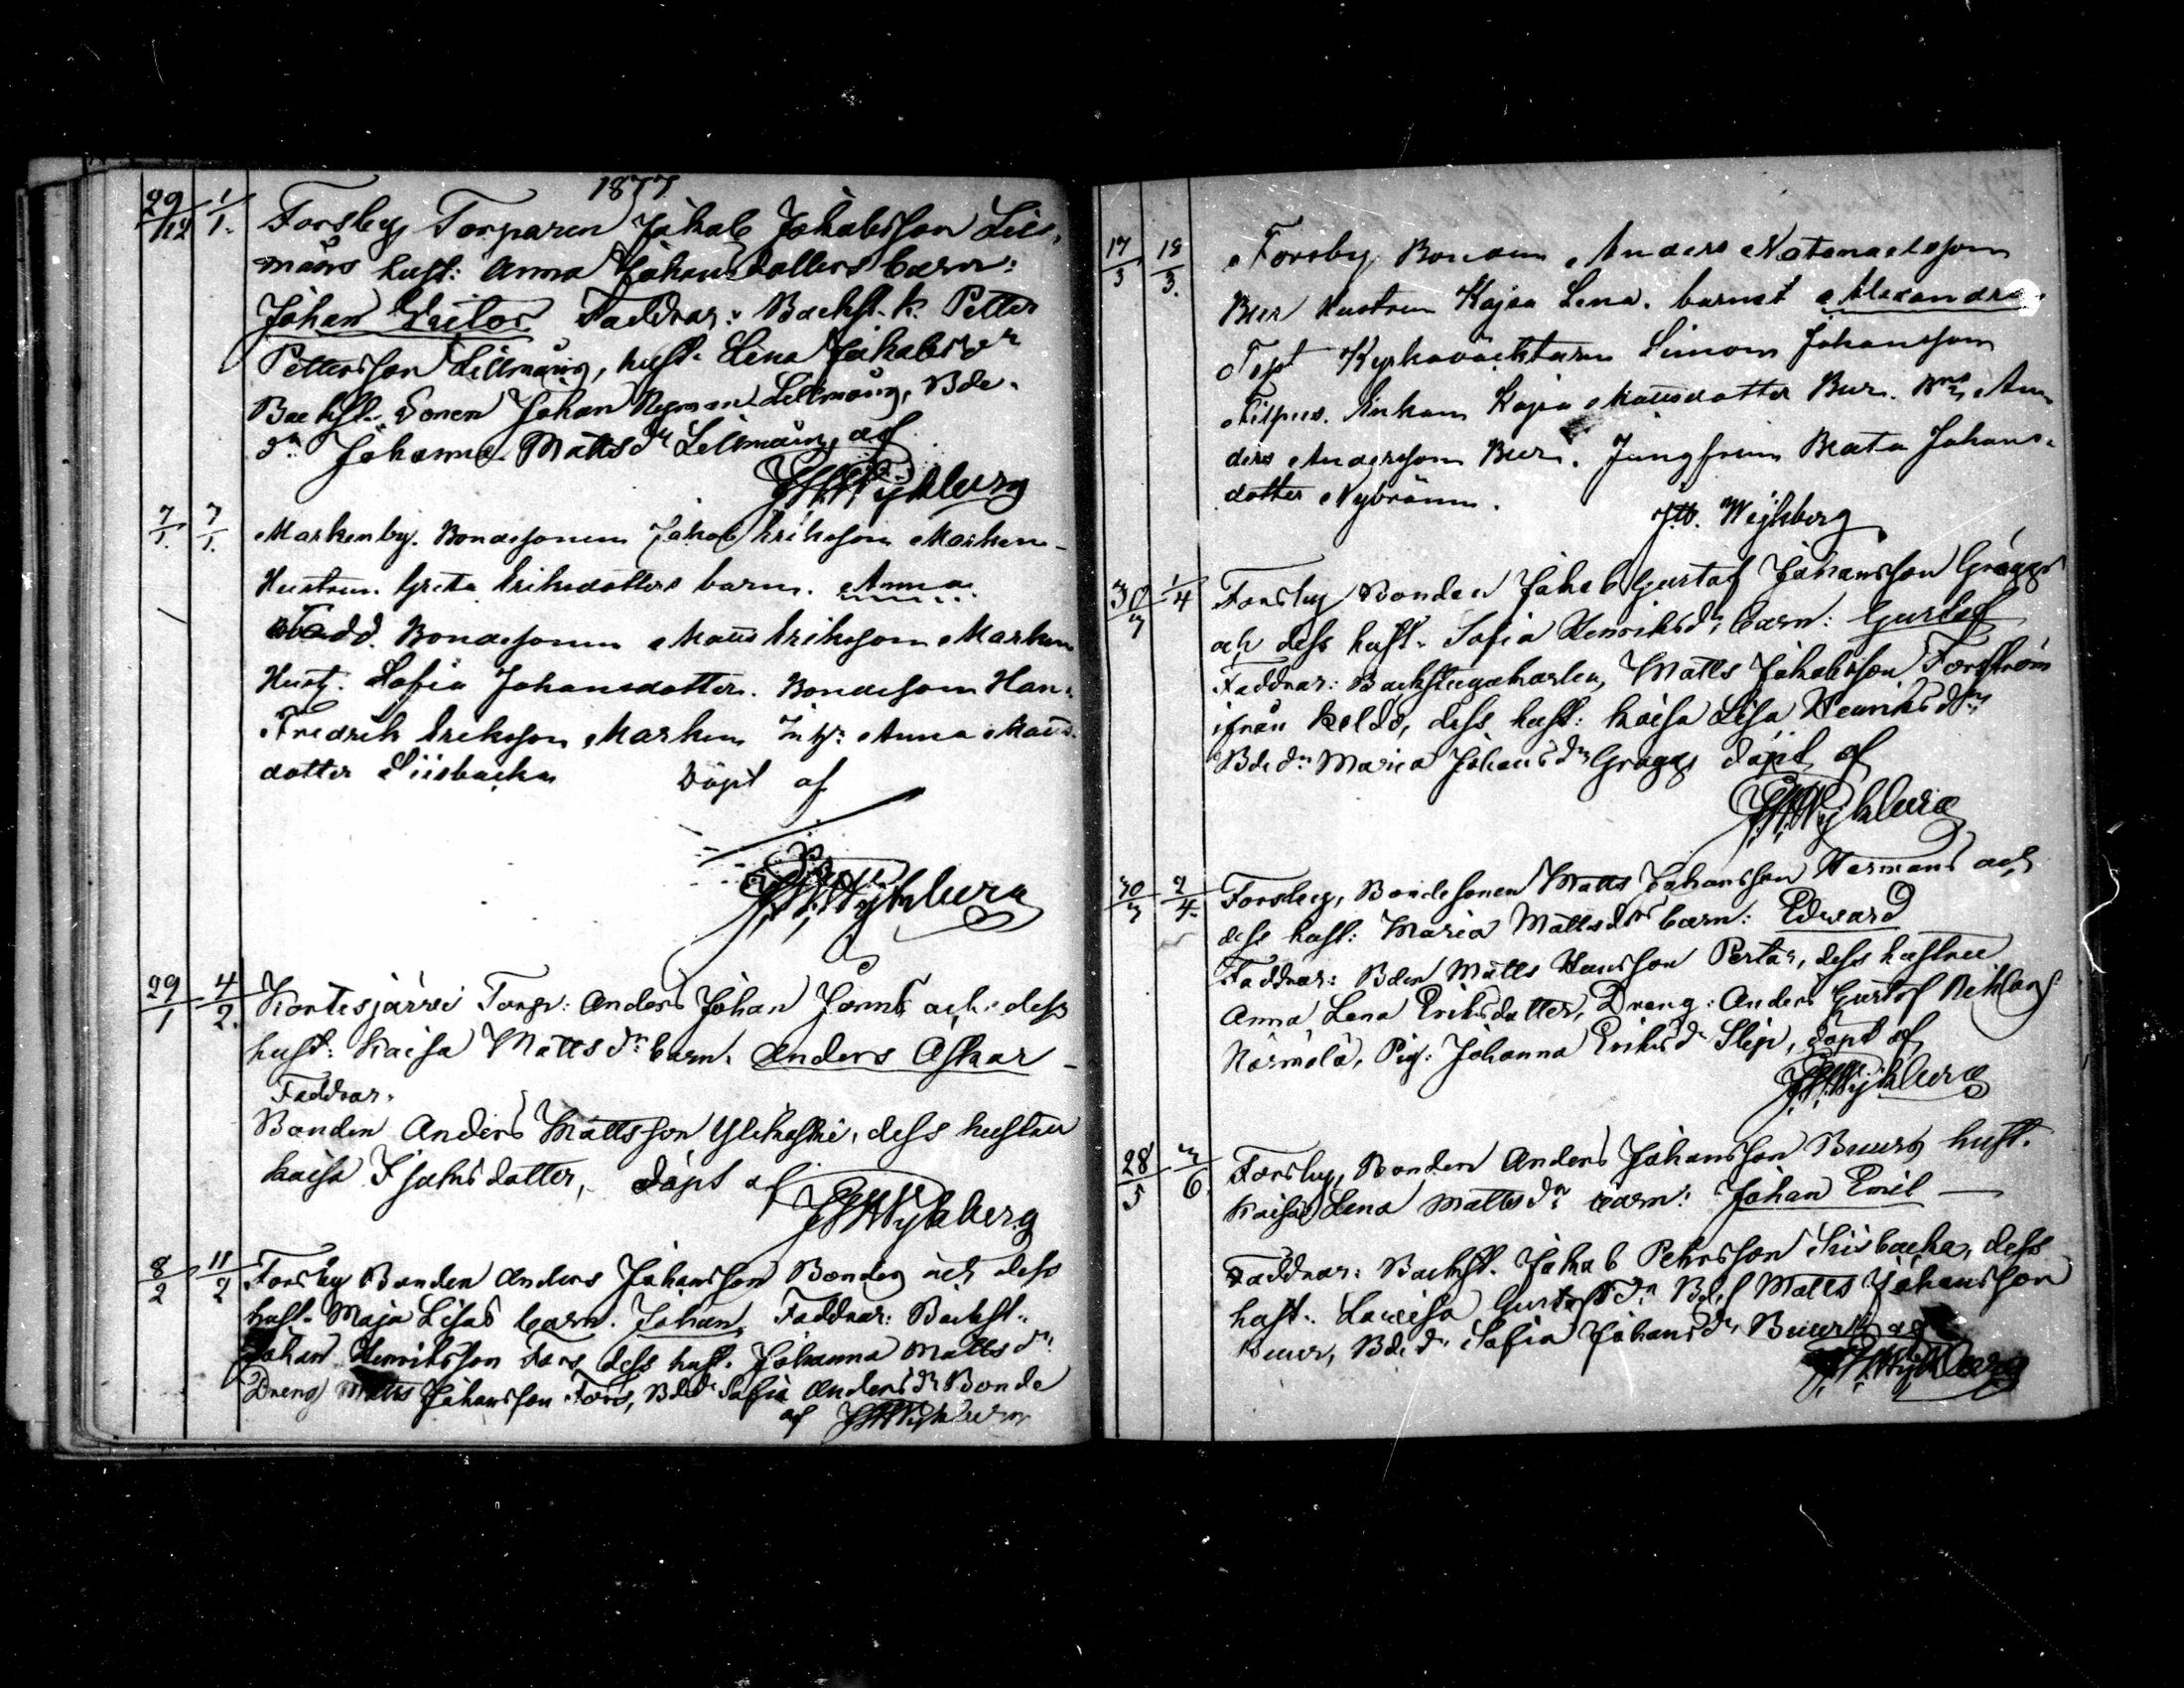 1877
29/12 1/1. Forsby, Torparen Jakob Jakobsson Lill-
mårs hust: Anna Johansdotters barn:
Johan Victor Faddrar: Backst. k. Petter
Pettersson Lillmårs, hust. Lena Jakobsdr
Backst. Sonen Johan Lillmårs, Bde.
dr Johanna Mattsdr Lillmårs, af
JWWijkberg
7/1. 7/1. Markenby. Bondesonen Jakob Eriksson Marken
Hustrun Greta Eriksdotters barn. Anna
Fadd. Bondesonen Matts Eriksson Marken
Hust. Sofia Johansdotter. Bondeson Han.
Fredrik Eriksson Marken Anna Matts
dotter Siisbacka Döpt af
JWWijkberg
29/1 4/2. Kortesjärvi Torp: Anders Johan och dess
hust: Kaisa Mattsdr barn. Anders Oskar
Faddrar.
Bonden Anders Mattsson Ylikoski, dess hustru
Kaisa Isaksdotter, döpt af
JWWijkberg
8/2 11/2 Forsby Bonden Anders Johansson Bondes och dess
hust. Maja Lisas barn. Johan, Faddrar: Backst.
Johan Henriksson Fors, dess hust. Johanna Mattsdr
Dreng Matts Johansson Fors, Bdedr Sofia Andersdr Bonde
af JWWijkberg
17/3 18/3. Forsby Bonden Anders Natanaelsson
Buur Hustrun Kajsa Lena. barnet Alexandra.
Test Kyrkoväktaren Simon Johansson
Filpus. Enkan Kajsa Mattsdotter Buur. An-
ders Andersson Buur. Jungfrun Beata Johans-
dotter Nybränn.
JW. Wijkberg
30/3 1/4 Forsby Bonden Jakob Gustaf Johansson Graggs
och dess hust. Sofia Henriksdr barn: Gustaf
Faddrar: Backstugukarlen, Matts Jakobsson Forsström
ifrån dess hust: Kaisa Lisa Henriksdr,
Bdedr Maria Johansdr Graggs döpt af
JWWijkberg
30/3 2/4. Forsby, Bondesonen Matts Johansson Hermans och
dess hust: Maria Mattsdrs barn: Edward
Faddrar: Bden Matts Hansson Pertar, dess hustru
Anna Lena Eriksdotter, Dreng: Anders Gustaf
Härmälä, Pig: Johanna Eriksdr Slip, döpt af
JWWijkberg
28/5 3/6. Forsby, Bonden Anders Johansson Buurs hust.
Kaisa Lena Mattsdr barn: Johan Emil
Faddrar: Backst. Jakob Pehrsson Siisbacka, dess
hust. Lovisa Gustafsdr Bdes Matts Johansson
Buur, Bdedr Sofia Johansdr Buur af
JWWijkberg